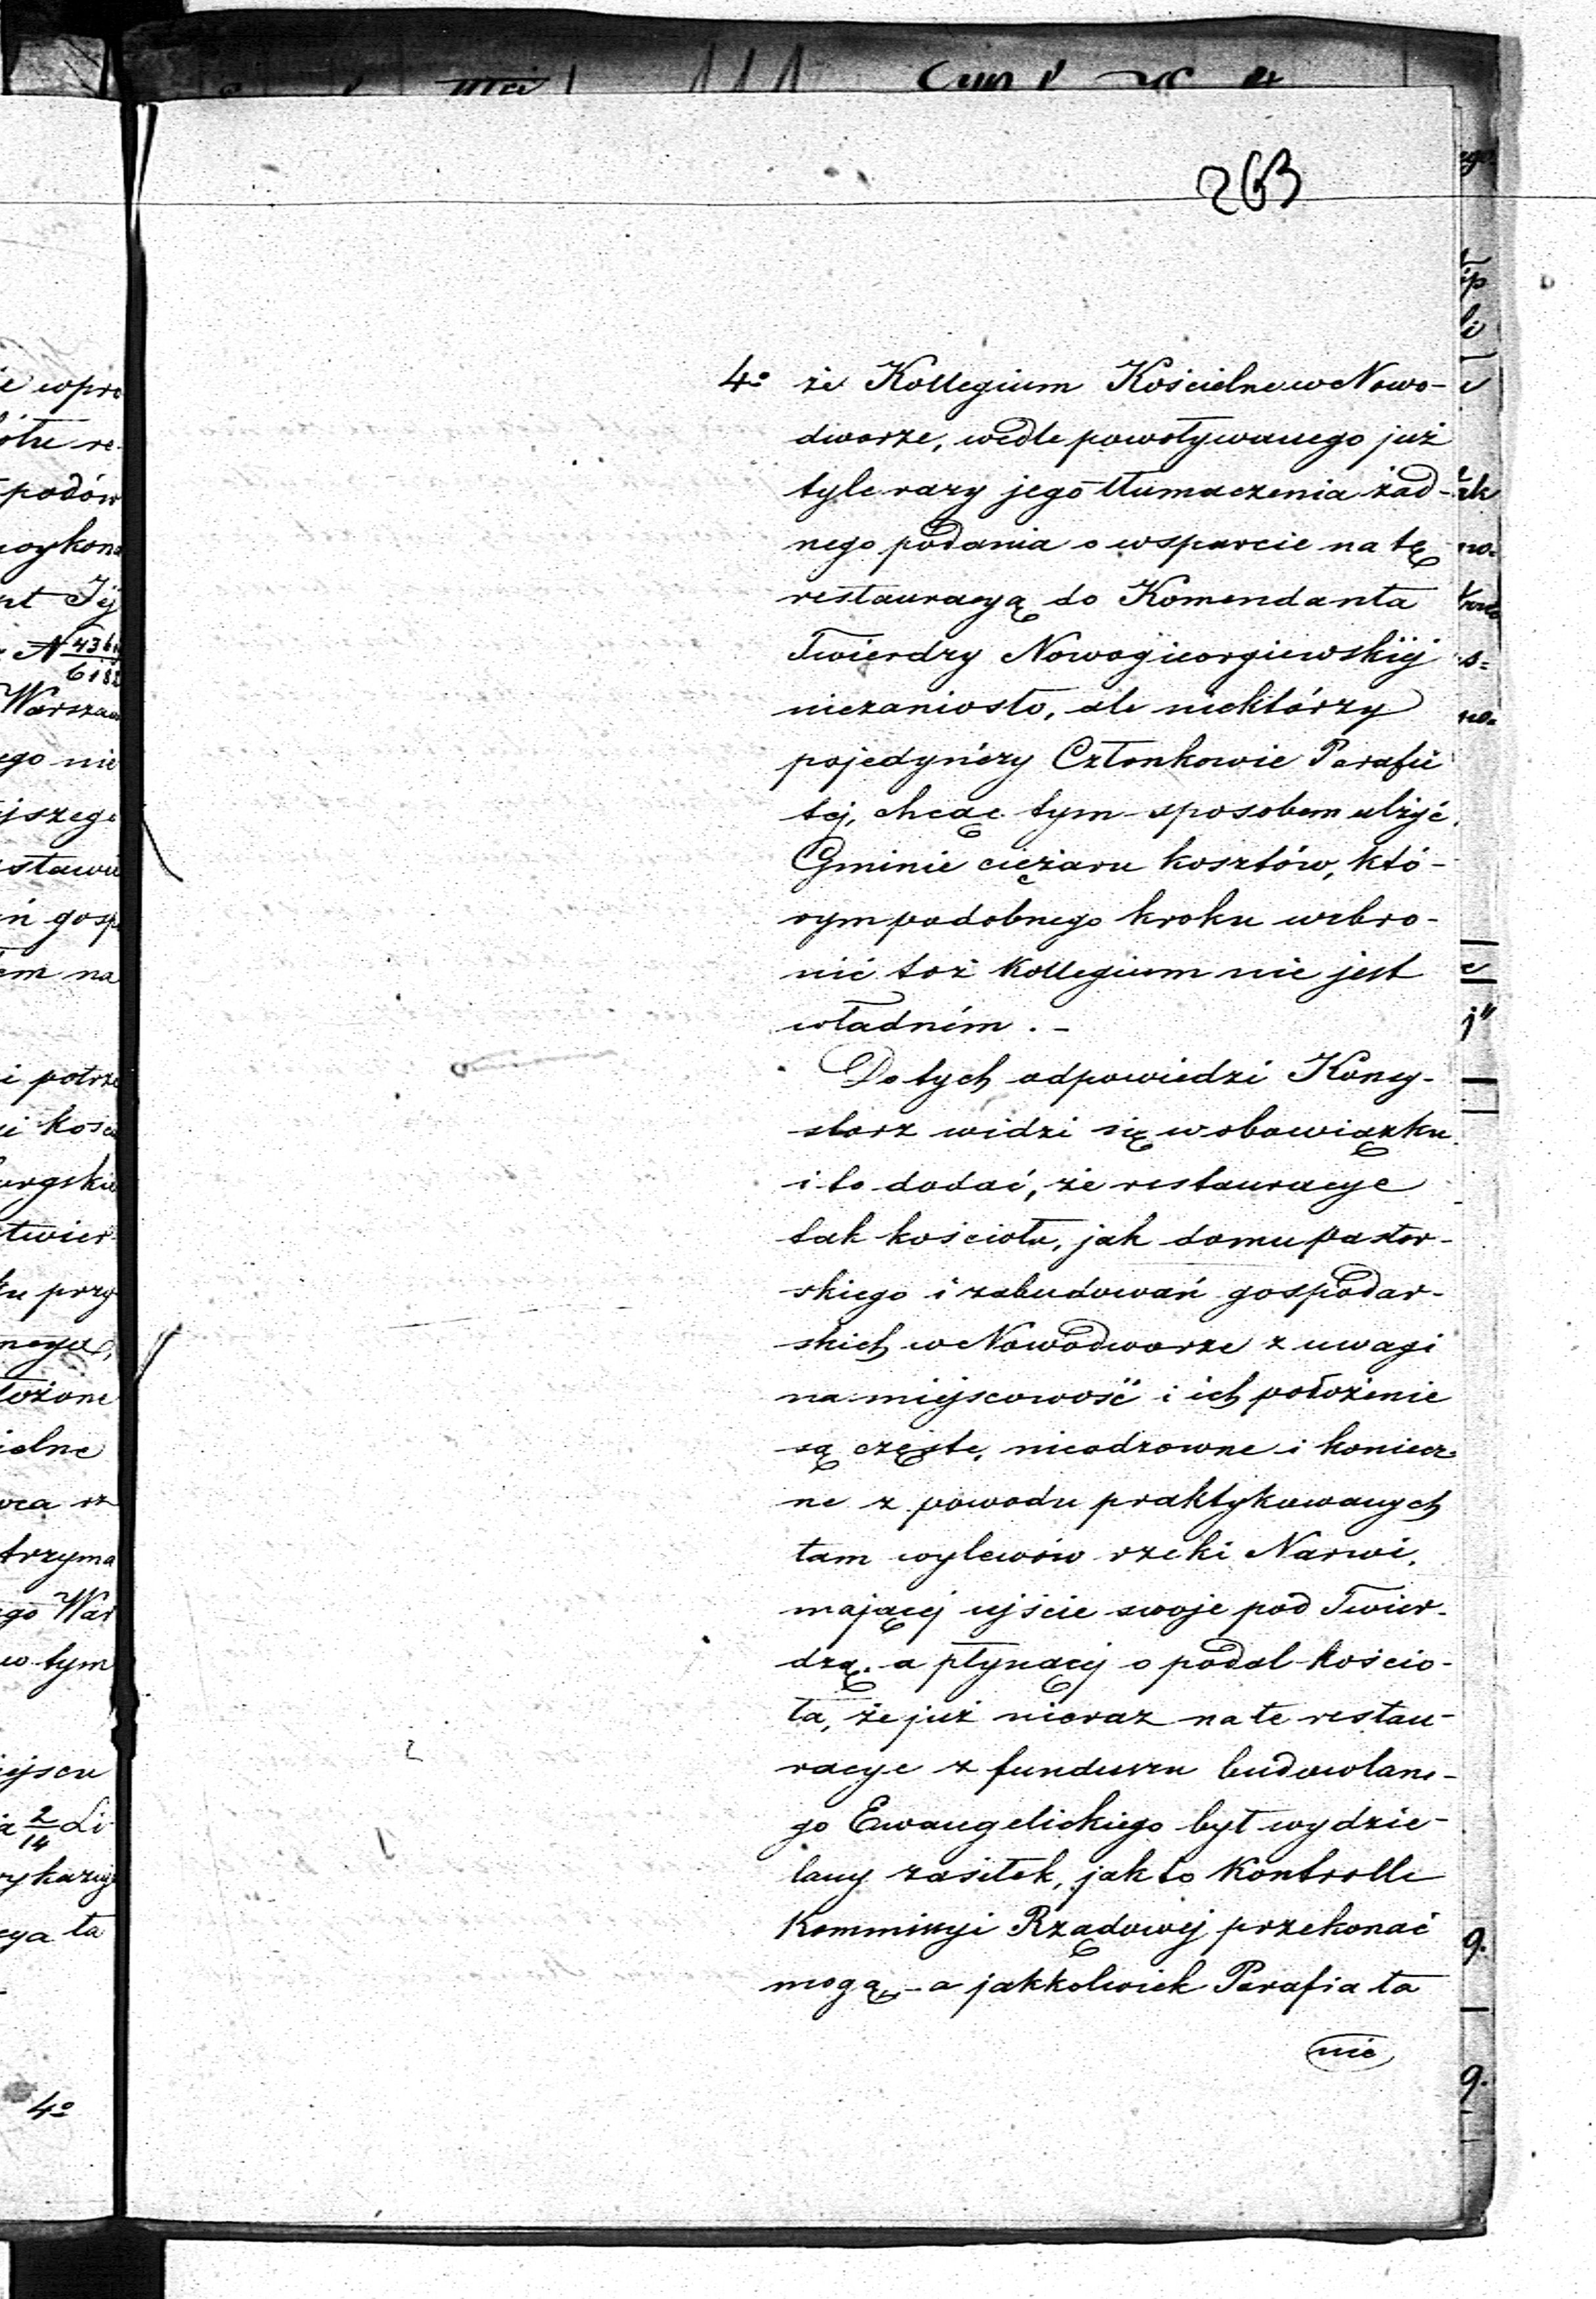 263
4o że Kollegium Kościelne w Nowo-
dworze, wedle powoływanego już
tyle razy jego tłumaczenia żad-
nego podania o wsparcie na tę
restauracyą do Komendanta
Twierdzy Nowogieorgiewskiéj
niezaniosło, ale niektórzy
pojedyńczy Członkowie Parafii
téj, chcąc tym sposobem ulżyć
Gminie ciężaru kosztów, któ-
rym podobnego kroku wzbro-
nić toż Kollegium nie jest
władném. -
Do tych odpowiedzi Konsy-
storz widzi się w obowiązku
i to dodać, że restauracye
tak kościoła, jak domu pastor-
skiego i zabudowań gospodar-
skich w Nowodworze z uwagi
na miejscowość i ich położenie
są częste, nieodzowne i koniecz-
ne z powodu praktykowanych
tam wylewów rzeki Narwi,
mającej ujście swoje pod Twier-
dzą, a płynącej opodal kościo-
ła, że już nieraz na te restau-
racye z funduszu budowlane-
go Ewangelickiego był wydzie-
lany zasiłek, jak to Kontrolle
Kommissyi Rządowéj przekonać
mogą, - a jakkolwiek Parafia ta
nie
ie wpro
podów
wykona
nt Jéj
N 436
618
Warszaw
ego nie
jszego
stawi
ń gosp
em na
i potrze
twier
ku przy
łożone
ielne
trzyma
go War
w tym
iejscu
2/14 Li
ykazuj
cya ta
4o